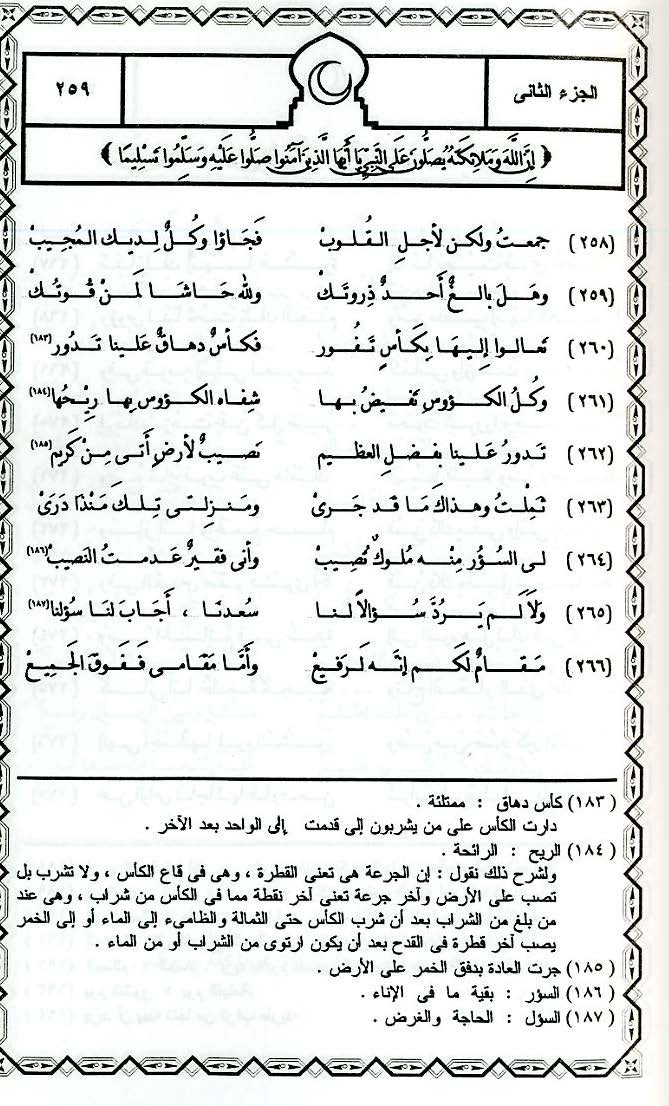 الجزء الثانى
٢٥٩
﴿ إِنَّ اللَّهَ وَمَلائِكَتَهُ يُصَلُّونَ عَلَى النَّبِيِّ يَا أَيُّهَا الَّذِينَ آمَنُوا صَلُّوا عَلَيْهِ وَسَلِّمُوا تَسْلِيمًا ﴾
(٢٥٨) جمعتُ ولكن لأجلِ القلوبْ فجاؤا وكلٌ لديك المُجيبْ
(٢٥٩) وهَلْ بالغٌ أحدٌ ذِروتكْ وللهِ حَاشَا لَمنْ قُوتُكْ
(٢٦٠) تعالوا إليهَا بِكَأسٍ تفُور فكأسٌ دهاقٌ عَلينا تَدُور (١٨٣)
(٢٦١) وكُلُ الكؤوسِ تفيضُ بها شِفاه الكؤوس بِها رِيْحُها (١٨٤)
(٢٦٢) تدورُ علينا بفضلِ العظيم نصيبٌ لأرضٍ أتى مِنْ كريم (١٨٥)
(٢٦٣) ثَمِلتُ وهذاك مَا قد جَرىْ ومنزِلتى تِلكَ مَنْذا دَرَىْ
(٢٦٤) لى السُؤر مِنْه ملوكٌ تُصِيبْ وأنى فقيرٌ عَدمتُ النَصيب (١٨٦)
(٢٦٥) ولاَ لم يَرُدَّ سُؤالاً لنا سُعدنَا ، أجَابَ لنَا سؤلنا (١٨٧)
(٢٦٦) مَقامٌ لَكم إنَّه لَرفيعْ وأمَّا مَقَامى فَفَوقَ الجَمِيعْ
(١٨٣) كأس دهاق : ممتلئة .
دارت الكأس على من يشربون إلى قدمت إلى الواحد بعد الآخر .
(١٨٤) الريح : الرائحة .
ولشرح ذلك نقول : إن الجرعة هى تعنى القطرة ، وهى فى قاع الكأس ، ولا تشرب بل
تصب على الأرض وآخر جرعة تعنى آخر نقطة مما فى الكأس من شراب ، وهى عند
من بلغ من الشراب بعد أن شرب الكأس حتى الثمالة والظامىء إلى الماء أو إلى الخمر
يصب آخر قطرة فى القدح بعد أن يكون ارتوى من الشراب أو من الماء .
(١٨٥) جرت العادة بدفق الخمر على الأرض .
(١٨٦) السؤر : بقية ما فى الإناء .
(١٨٧) السؤل : الحاجة والغرض .